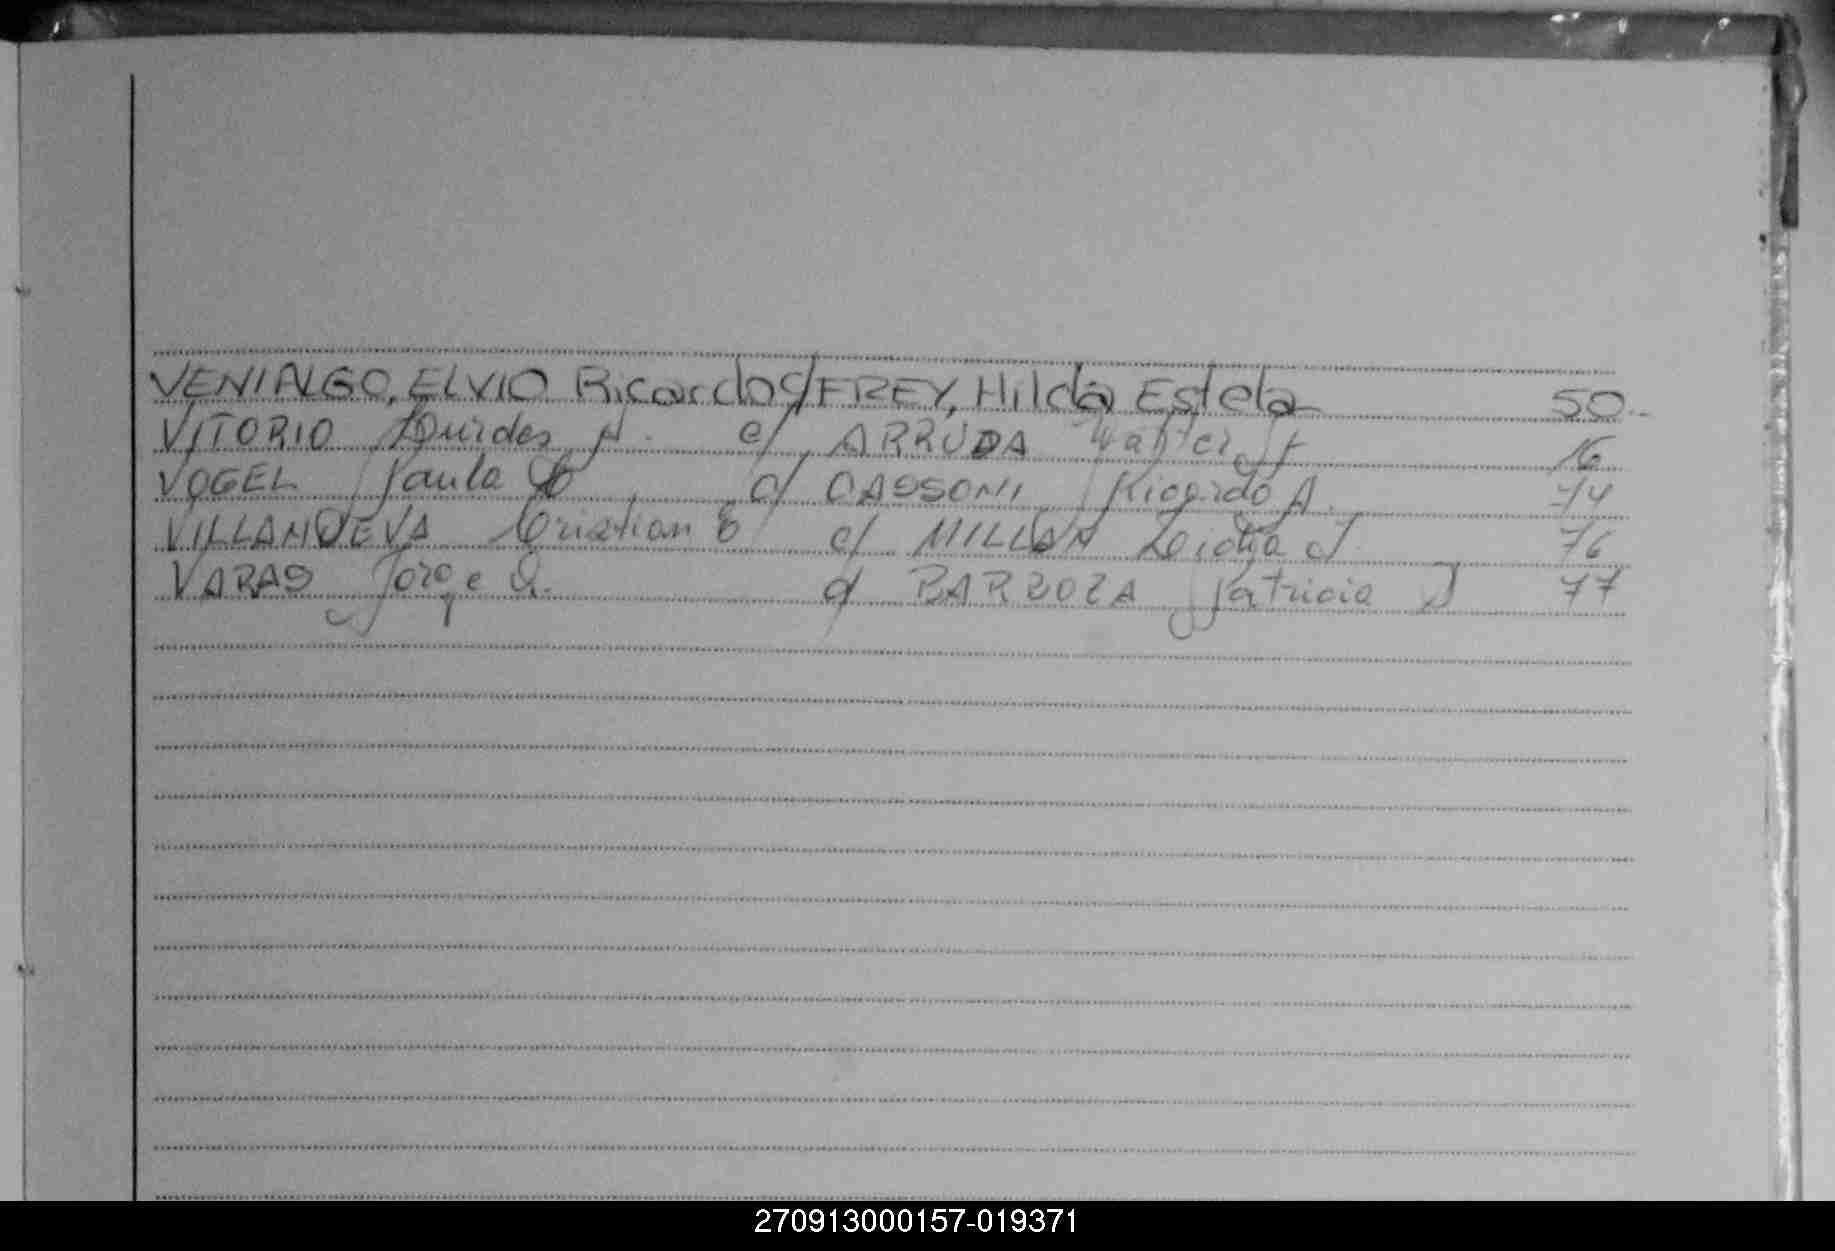 VENIALGO, ELVIO Ricardo c/ FREY, Hilda Estela 50.-
VITORIO Lourdes N. c/ ARRUDA Walter 16
VOGEL Paula c/ CASSONI Ricardo A. 74
VILLANUEVA Cristian E c/ MILLAN Lidia J. 76
VARAS Jorge c/ BARBOZA Patricia 77
270913000157-019371